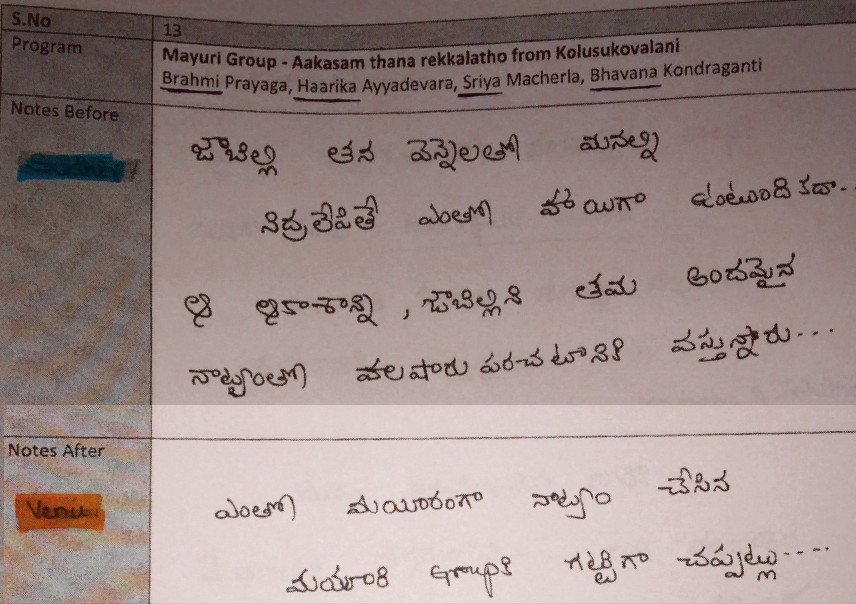 S.No
13
Program
Mayuri Group - Aakasam thana rekkalatho from Kolusukovalani
Brahmi Prayaga, Haarika Ayyadevara, Sriya Macherla, Bhavana Kondraganti
Notes Before
జాబిల్లి తన వెన్నెలతో మనల్ని
నిద్రలేపితే ఎంతో హాయిగా ఉంటుంది కదా...
ఆ ఆకాశాన్ని, జాబిల్లిని తమ అందమైన
నాట్యంతో వలపారు పరచటానికి వస్తున్నారు...
Notes After
Venu
ఎంతో మయూరంగా నాట్యం చేసిన
మయూరి Groupకి గట్టిగా చప్పట్లు....